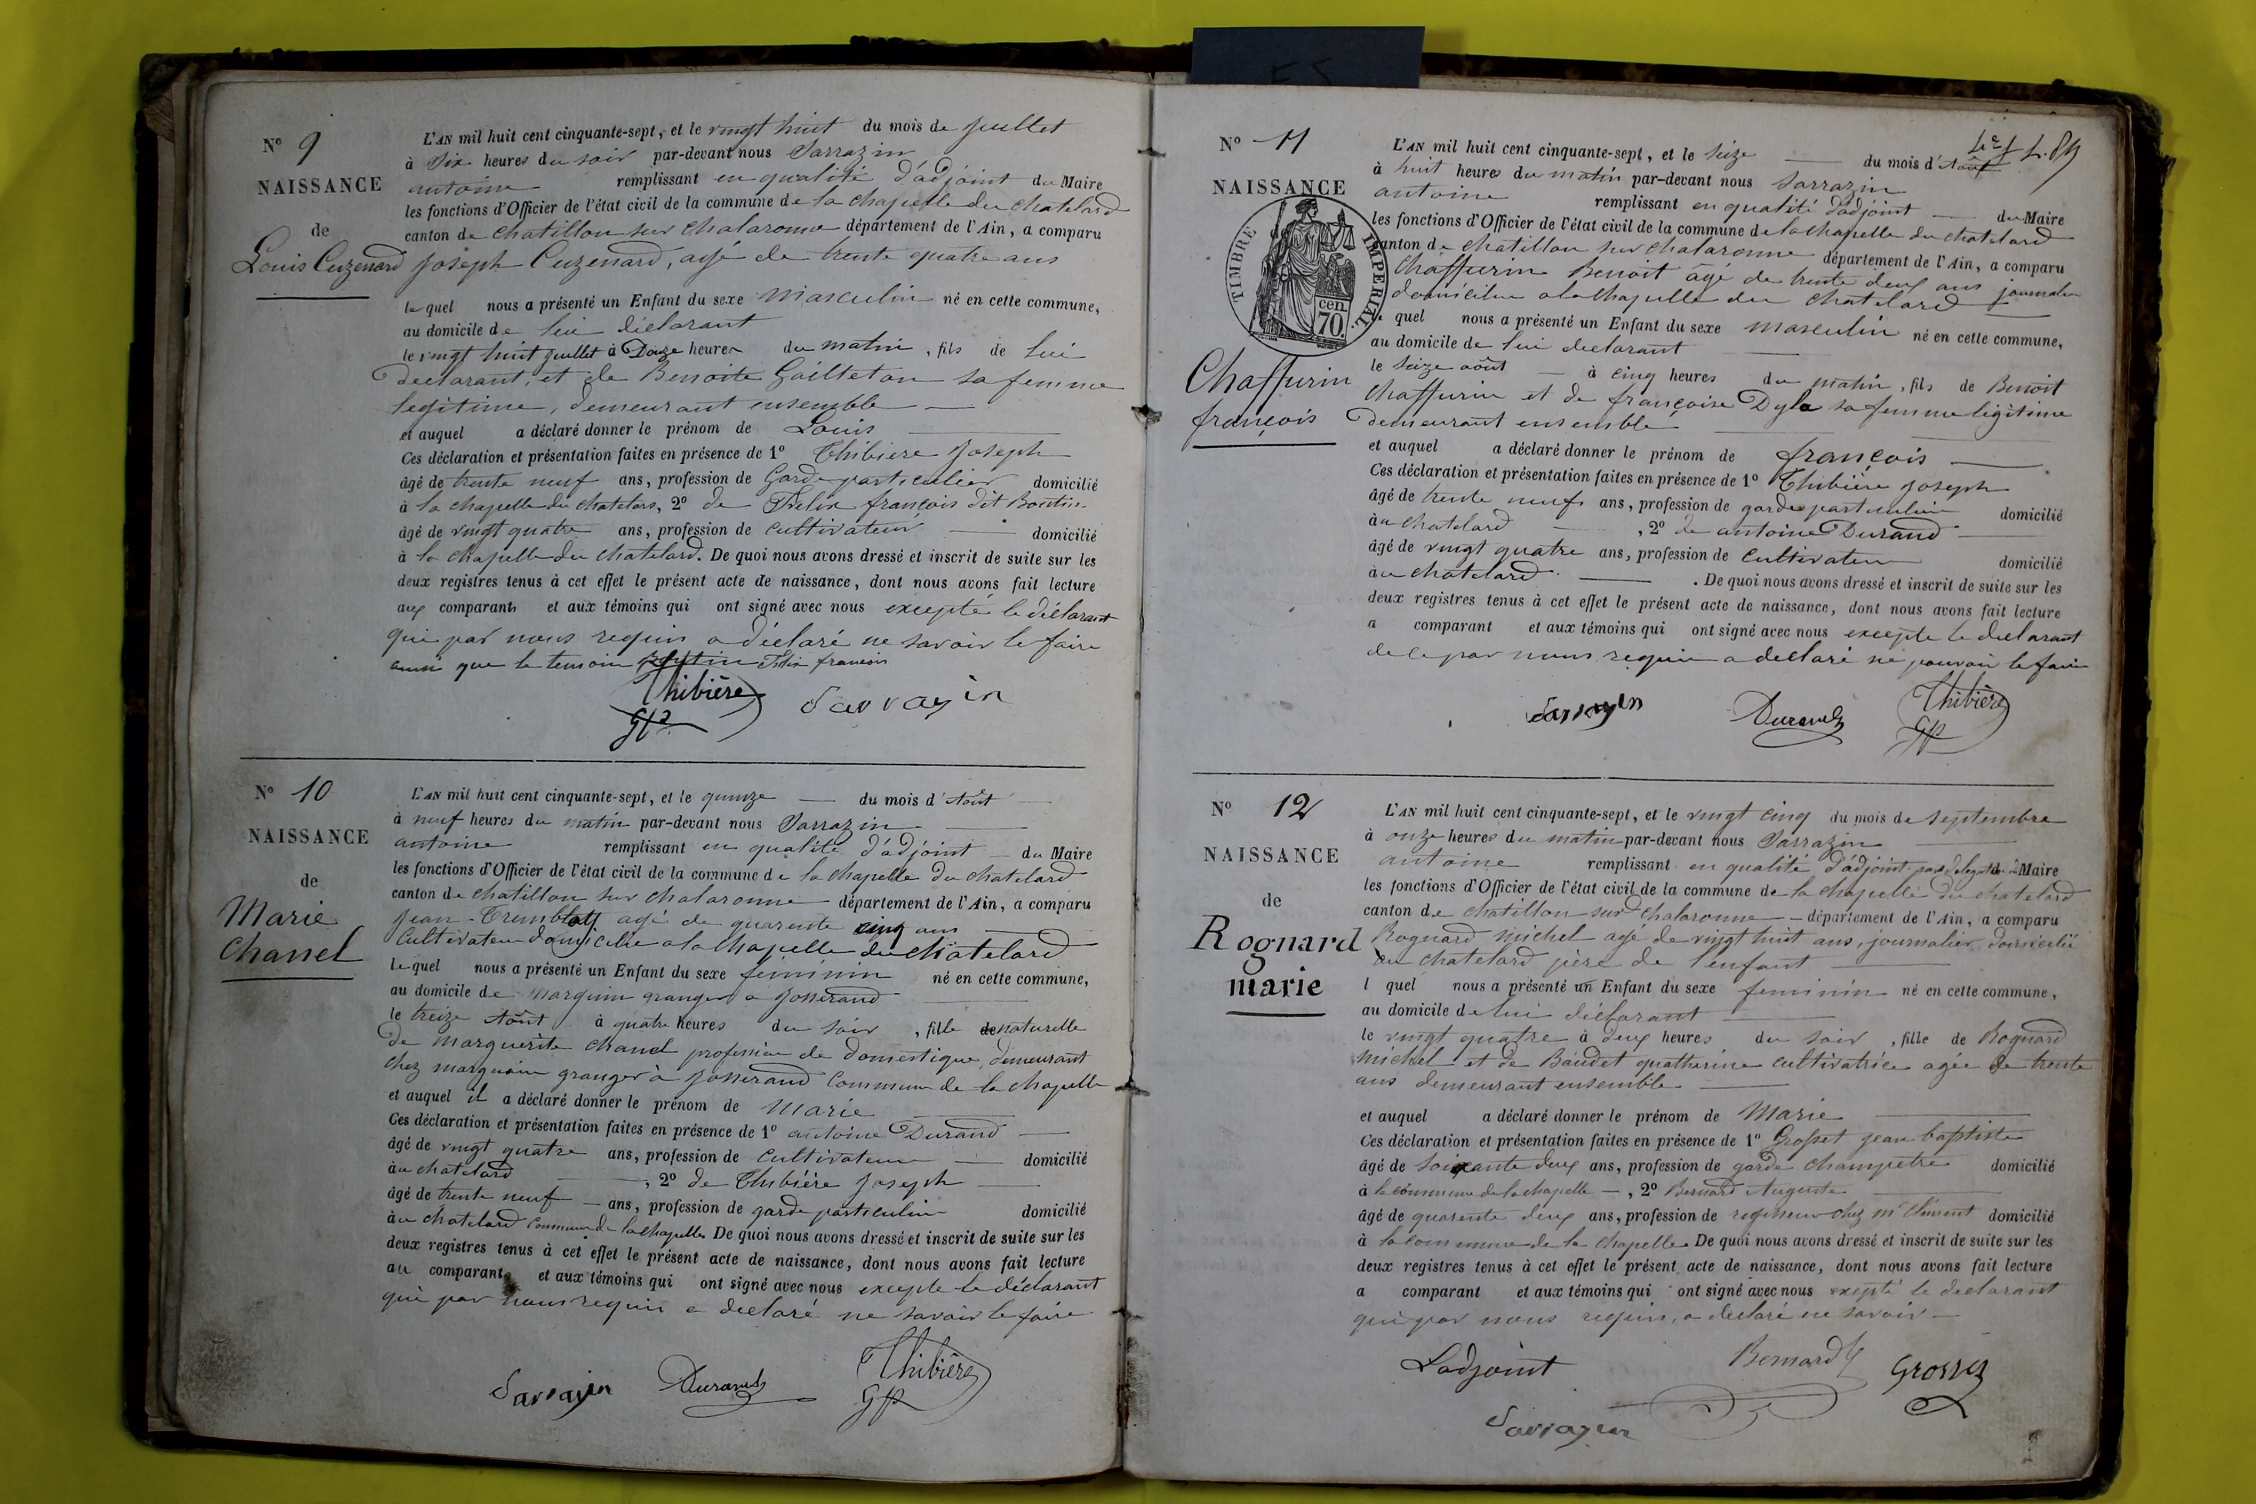 N° 9
NAISSANCE
de
Louis Cuzenard
L'AN mil huit cent cinquante-sept, et le vingt huit du mois de juillet
à Six heures du soir par-devant nous Sarrazin
antoine remplissant en qualité d'adjoint du Maire
les fonctions d'Officier de l'état civil de la commune de la chapelle du chatelard
canton de chatillon sur chalaronne département de l'Ain, a comparu
joseph Cuzenard, agé de trente quatre ans
le quel nous a présenté un Enfant du sexe masculin né en cette commune,
au domicile de lui déclarant
le vingt huit juillet à Douze heures du matin, fils de lui
declarant, et de Benoite Gailleton sa femme
legitime, demeurant ensemble
et auquel a déclaré donner le prénom de Louis
Ces déclaration et présentation faites en présence de 1° Thibiere Joseph
âgé de trente neuf ans, profession de Garde particulier domicilié
à la chapelle du chatelard, 2° de Felix françois dit Boutin
âgé de vingt quatre ans, profession de cultivateur domicilié
à la chapelle du chatelard. De quoi nous avons dressé et inscrit de suite sur les
deux registres tenus à cet effet le présent acte de naissance, dont nous avons fait lecture
aux comparants et aux témoins qui ont signé avec nous excepté le déclarant
qui par nous requis a déclaré ne savoir le faire
ainsi que le temoin Felix francois
Thibière Sarrazin
Gp
N° 10
NAISSANCE
de
Marie
Chanel
L'AN mil huit cent cinquante-sept, et le quinze du mois d'Août
à neuf heures du matin par-devant nous Sarrazin
antoine remplissant en qualité d'adjoint du Maire
les fonctions d'Officier de l'état civil de la commune de la chapelle du chatelard
canton de chatillon sur chalaronne département de l'Ain, a comparu
Jean-Tremblay agé de quarente cinq ans
Cultivateur domicilié a la chapelle du chatelard
le quel nous a présenté un Enfant du sexe féminin né en cette commune,
au domicile de marguin granger a josserand
le treize Août à quatre heures du soir, fille de naturelle
de marguerite chanel profession de domestique demeurant
chez marguin granger à josserand Commune de la chapelle
et auquel il a déclaré donner le prénom de Marie
Ces déclaration et présentation faites en présence de 1° antoine Durand
âgé de vingt quatre ans, profession de cultivateur domicilié
à au chatelard, 2° de Thibiére joseph
âgé de trente neuf ans, profession de garde particulier domicilié
à au chatelard commune de la chapelle. De quoi nous avons dressé et inscrit de suite sur les
deux registres tenus à cet effet le présent acte de naissance, dont nous avons fait lecture
au comparant et aux témoins qui ont signé avec nous excepte le déclarant
qui par nous requis a declaré ne savoir le faire
Sarrazin Durand Thibière
Gp
N° 11
NAISSANCE
TIMBRE IMPERIAL.
70 cen
Chaffurin
françois
L'AN mil huit cent cinquante-sept, et le seize du mois d'Août
à huit heures du matin par-devant nous Sarrazin
antoine remplissant en qualité d'adjoint du Maire
les fonctions d'Officier de l'état civil de la commune de la chapelle du chatelard
canton de chatillon sur chalaronne département de l'Ain, a comparu
Chaffurin Benoit agé de trente deux ans journalier
domicilie a la chapelle du chatelard
quel nous a présenté un Enfant du sexe masculin né en cette commune,
au domicile de lui declarant
le Seize août à cinq heures du matin, fils de Benoit
Chaffurin et de françoise Dyla sa femme légitime
Demeurant ensemble
et auquel a déclaré donner le prénom de françois
Ces déclaration et présentation faites en présence de 1° Thibiére joseph
âgé de trente neuf ans, profession de garde particulier domicilié
à au chatelard, 2° de antoine Durand
âgé de vingt quatre ans, profession de cultivateur domicilié
à au chatelard. De quoi nous avons dressé et inscrit de suite sur les
deux registres tenus à cet effet le présent acte de naissance, dont nous avons fait lecture
a comparant et aux témoins qui ont signé avec nous excepte le declarant
de ce par nous requis a declaré ne pouvoir le faire
Sarrazin Durand Thibière
Gp
N° 12
NAISSANCE
de
Rognard
marie
L'AN mil huit cent cinquante-sept, et le vingt cinq du mois de septembre
à onze heures du matin par-devant nous Sarrazin
antoine remplissant en qualité d'adjoint Maire
les fonctions d'Officier de l'état civil de la commune de la chapelle du chatelard
canton de chatillon sur chalaronne département de l'Ain, a comparu
Rognard michel agé de vingt huit ans, journalier, domicilié
au chatelard père de l'enfant
l quel nous a présenté un Enfant du sexe feminin né en cette commune,
au domicile de lui déclarant
le vingt quatre à deux heures du soir, fille de Rognard
michel et de Baudet quatherine cultivatrice agée de trente
ans demeurant ensemble
et auquel a déclaré donner le prénom de Marie
Ces déclaration et présentation faites en présence de 1° Grosset jean baptiste
âgé de soixante deux ans, profession de garde champetre domicilié
à la commune de la chapelle, 2° Bernard Auguste
âgé de quarente deux ans, profession de regisseur chez mr Clément domicilié
à la commune de la chapelle De quoi nous avons dressé et inscrit de suite sur les
deux registres tenus à cet effet le présent acte de naissance, dont nous avons fait lecture
a comparant et aux témoins qui ont signé avec nous exepté le declarant
qui par nous requis, a declaré ne savoir
Ladjoint Bernard Grosset
Sarrazin